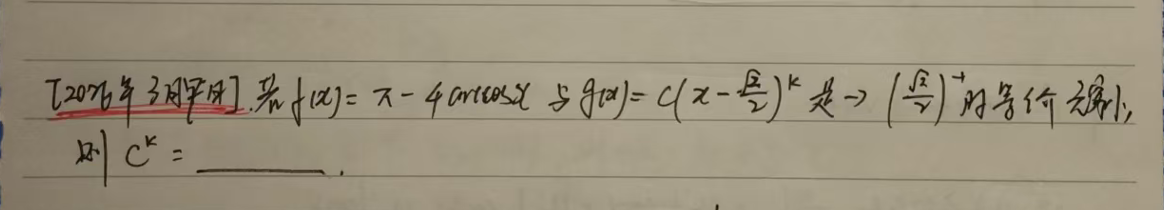 [2026年3月平月].若f(x)=π-4arccosx与g(x)=C(x-√2/2)^k是→(√2/2)^+的等价无穷小,
则C^k=______.